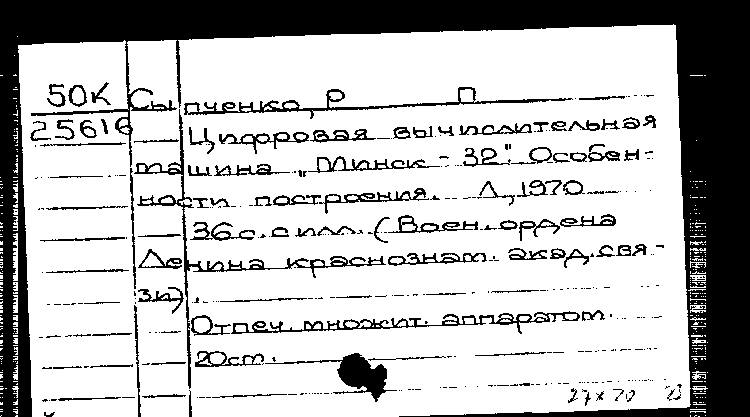 50К Сыпченко, Р П
25616 Цифровая вычислительная
машина „Минск - 32". Особен-
ности построения. Л, 1970
36с. с илл. (Воен. ордена
Ленина краснознам. акад. свя-
зи).
Отпеч. множит. аппаратом.
20см.
27x70